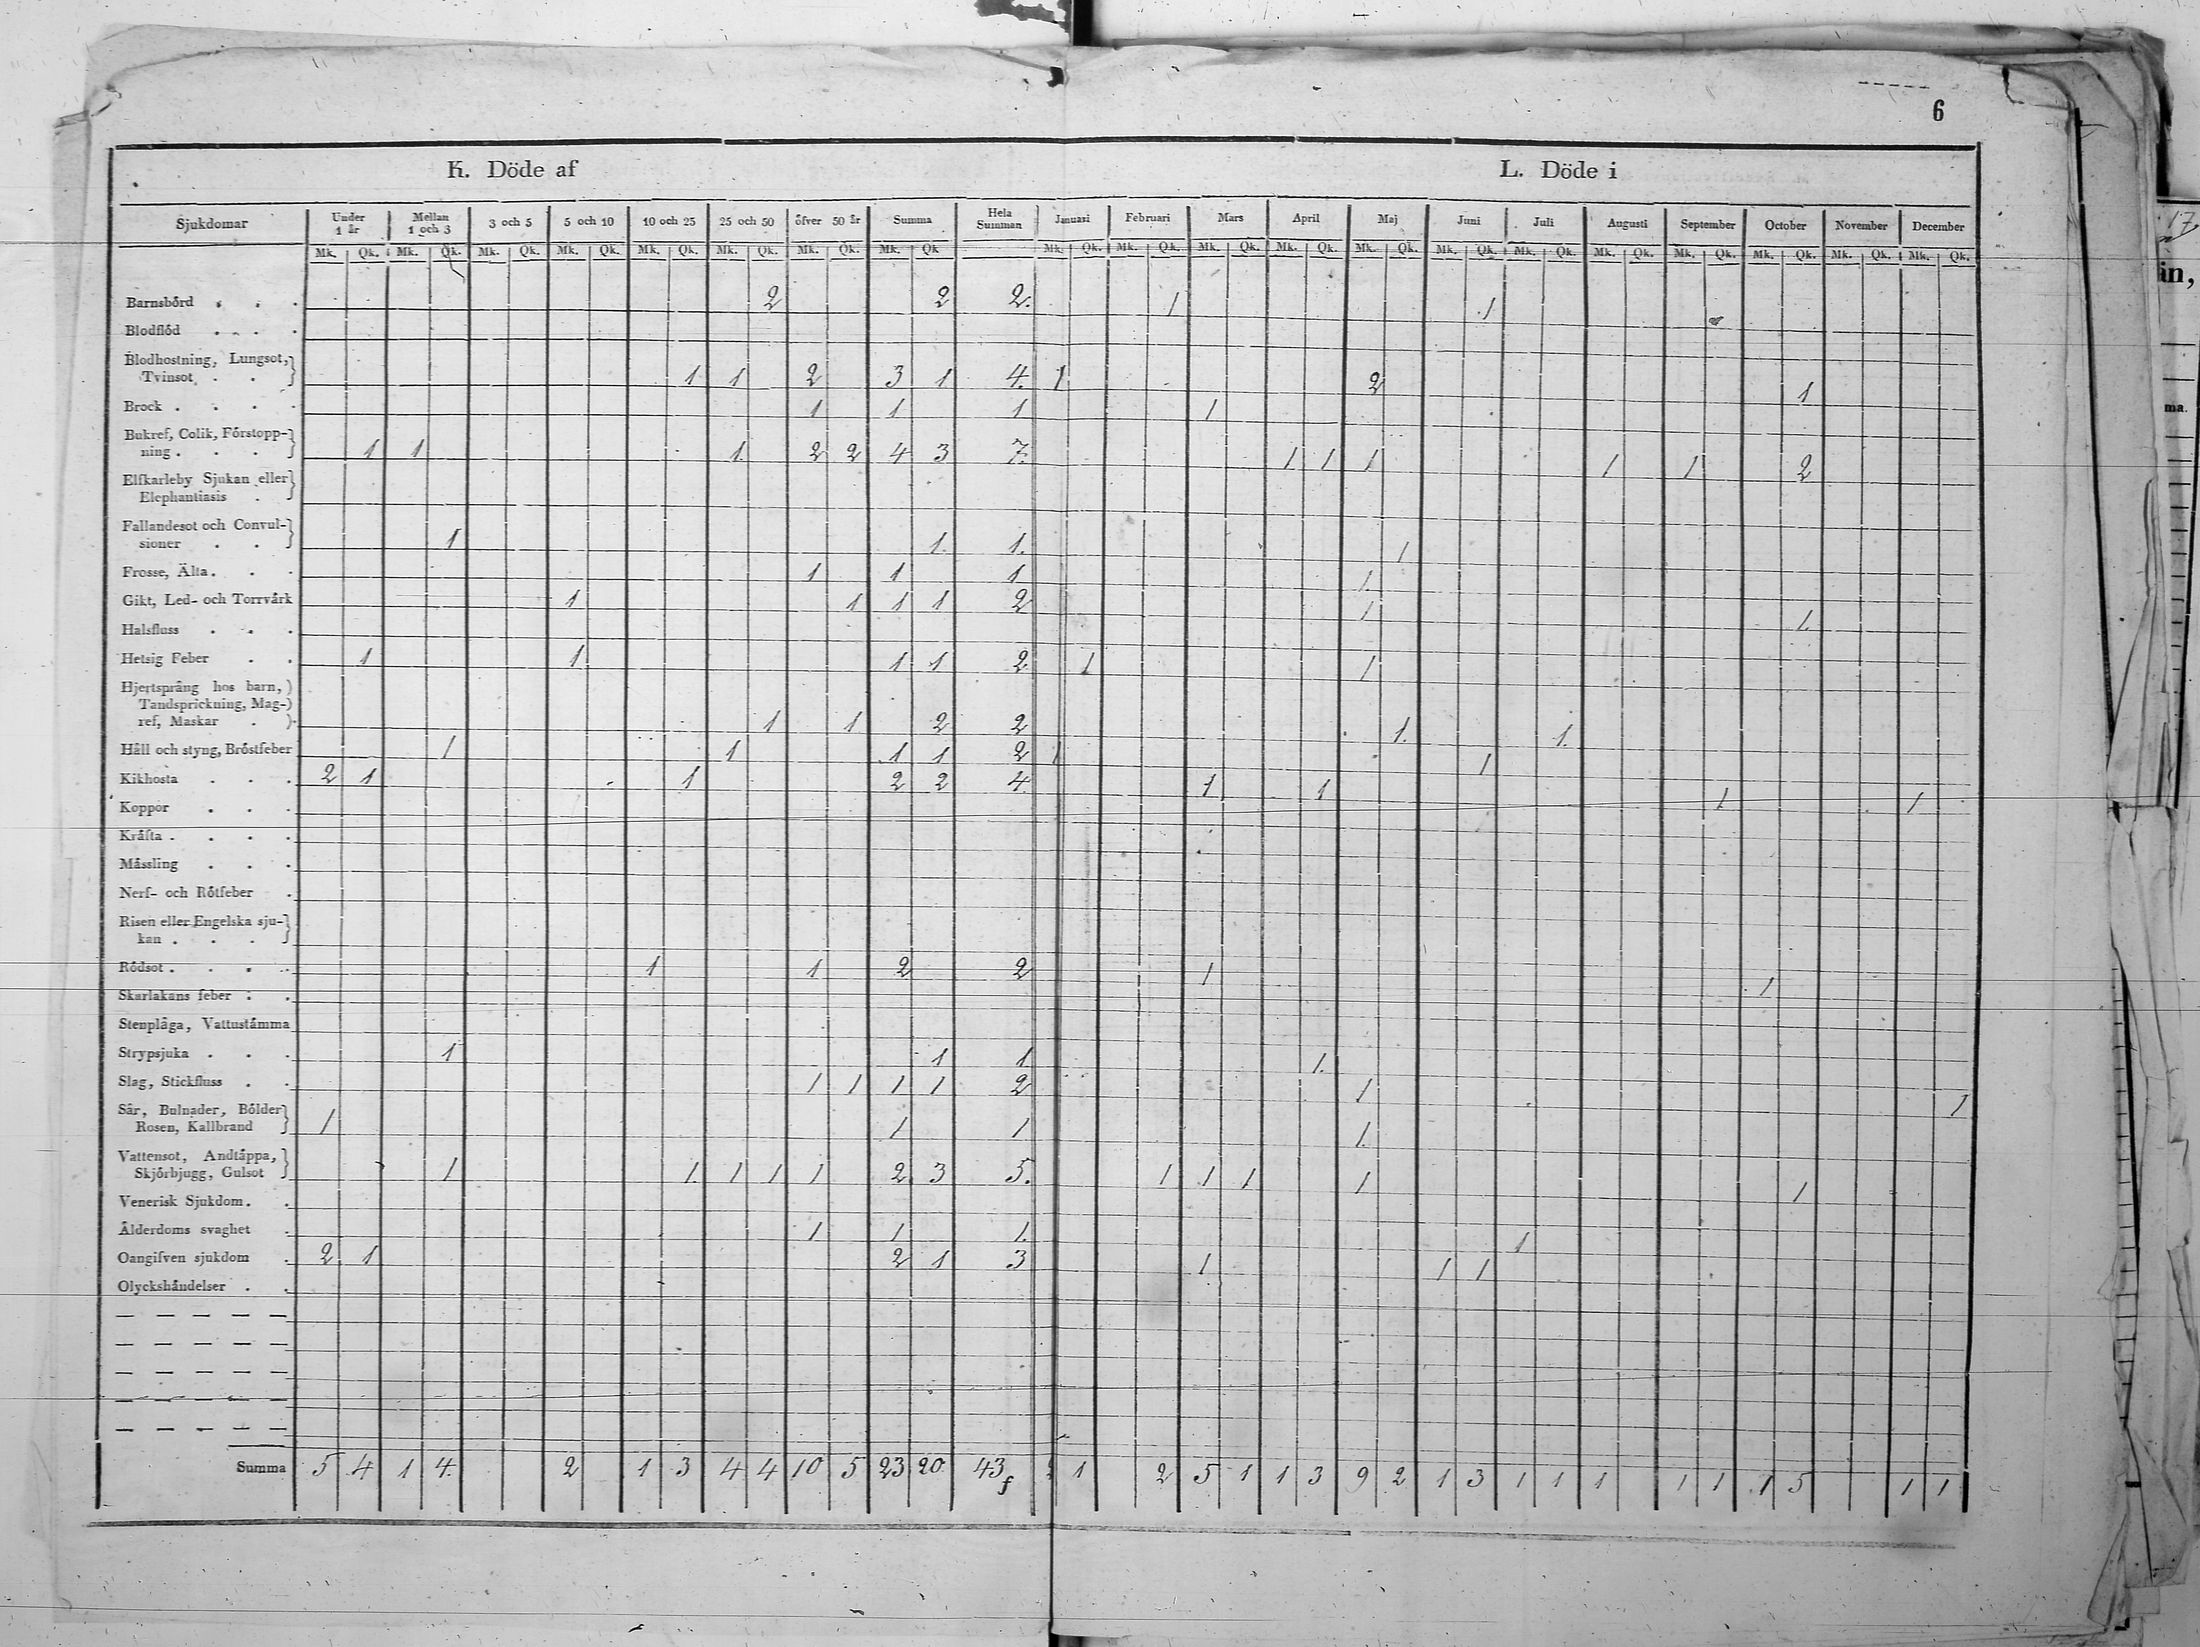 6
K. Döde af L. Döde i
Sjukdomar Under 1 år Mellan 1 och 3 3 och 5 5 och 10 10 och 25 25 och 50 öfver 50 år Summa Hela Summan Januari Februari Mars April Maj Juni Juli Augusti September October November December
Mk. Qk. Mk. Qk. Mk. Qk. Mk. Qk. Mk. Qk. Mk. Qk. Mk. Qk. Mk. Qk Mk. Qk. Mk. Qk. Mk. Qk. Mk. Qk. Mk. Qk. Mk. Qk. Mk. Qk. Mk. Qk. Mk. Qk. Mk. Qk. Mk. Qk. Mk. Qk.
Barnsbörd . . . 2 2 2. 1 1
Blodflöd . . . .
Blodhostning, Lungsot,
Tvinsot . . 1 1 2 3 1 4. 1 2 1
Brock . . . . 1 1 1 1
Bukref, Colik, Förstopp-
ning . . . . 1 1 1 2 2 4 3 7. 1 1 1 1 1 2
Elfkarleby Sjukan eller
Elephantiasis .
Fallandesot och Convul-
sioner . . 1 1. 1. 1
Frosse, Älta . . . 1 1 1 1
Gikt, Led- och Torrvärk 1 1 1 1 2 1 1.
Halsfluss . . .
Hetsig Feber . . 1 1 1 1 2 1 1
Hjertsprång hos barn,
Tandsprickning, Mag-
ref, Maskar . 1 1 2 2 1. 1.
Håll och styng, Bröstfeber 1 1 1 1 2 1 1
Kikhosta . . . 2 1 1 2 2 4 1 1 1 1
Koppor . . .
Kräfta . . . .
Mässling . . .
Nerf- och Rötfeber .
Risen eller Engelska sju-
kan . . .
Rödsot . . . . 1 1 2 2 1 1
Skarlakans feber . .
Stenplåga, Vattustämma
Strypsjuka . . . 1 1 1 1.
Slag, Stickfluss . . 1 1 1 1 2 1 1
Sår, Bulnader, Bölder
Rosen, Kallbrand 1 1 1 1
Vattensot, Andtäppa,
Skjörbjugg, Gulsot 1 1. 1 1 1 2 3 5. 1 1 1 1 1
Venerisk Sjukdom . .
Ålderdoms svaghet . 1 1 1. 1
Oangifven sjukdom . 2 1 2 1 3 1 1 1
Olyckshändelser . .
Summa 5 4 1 4. 2 1 3 4 4 10 5 23 20 43 2 1 2 5 1 1 3 9 2 1 3 1 1 1 1 1 1 5 1 1
17
än,
ma.